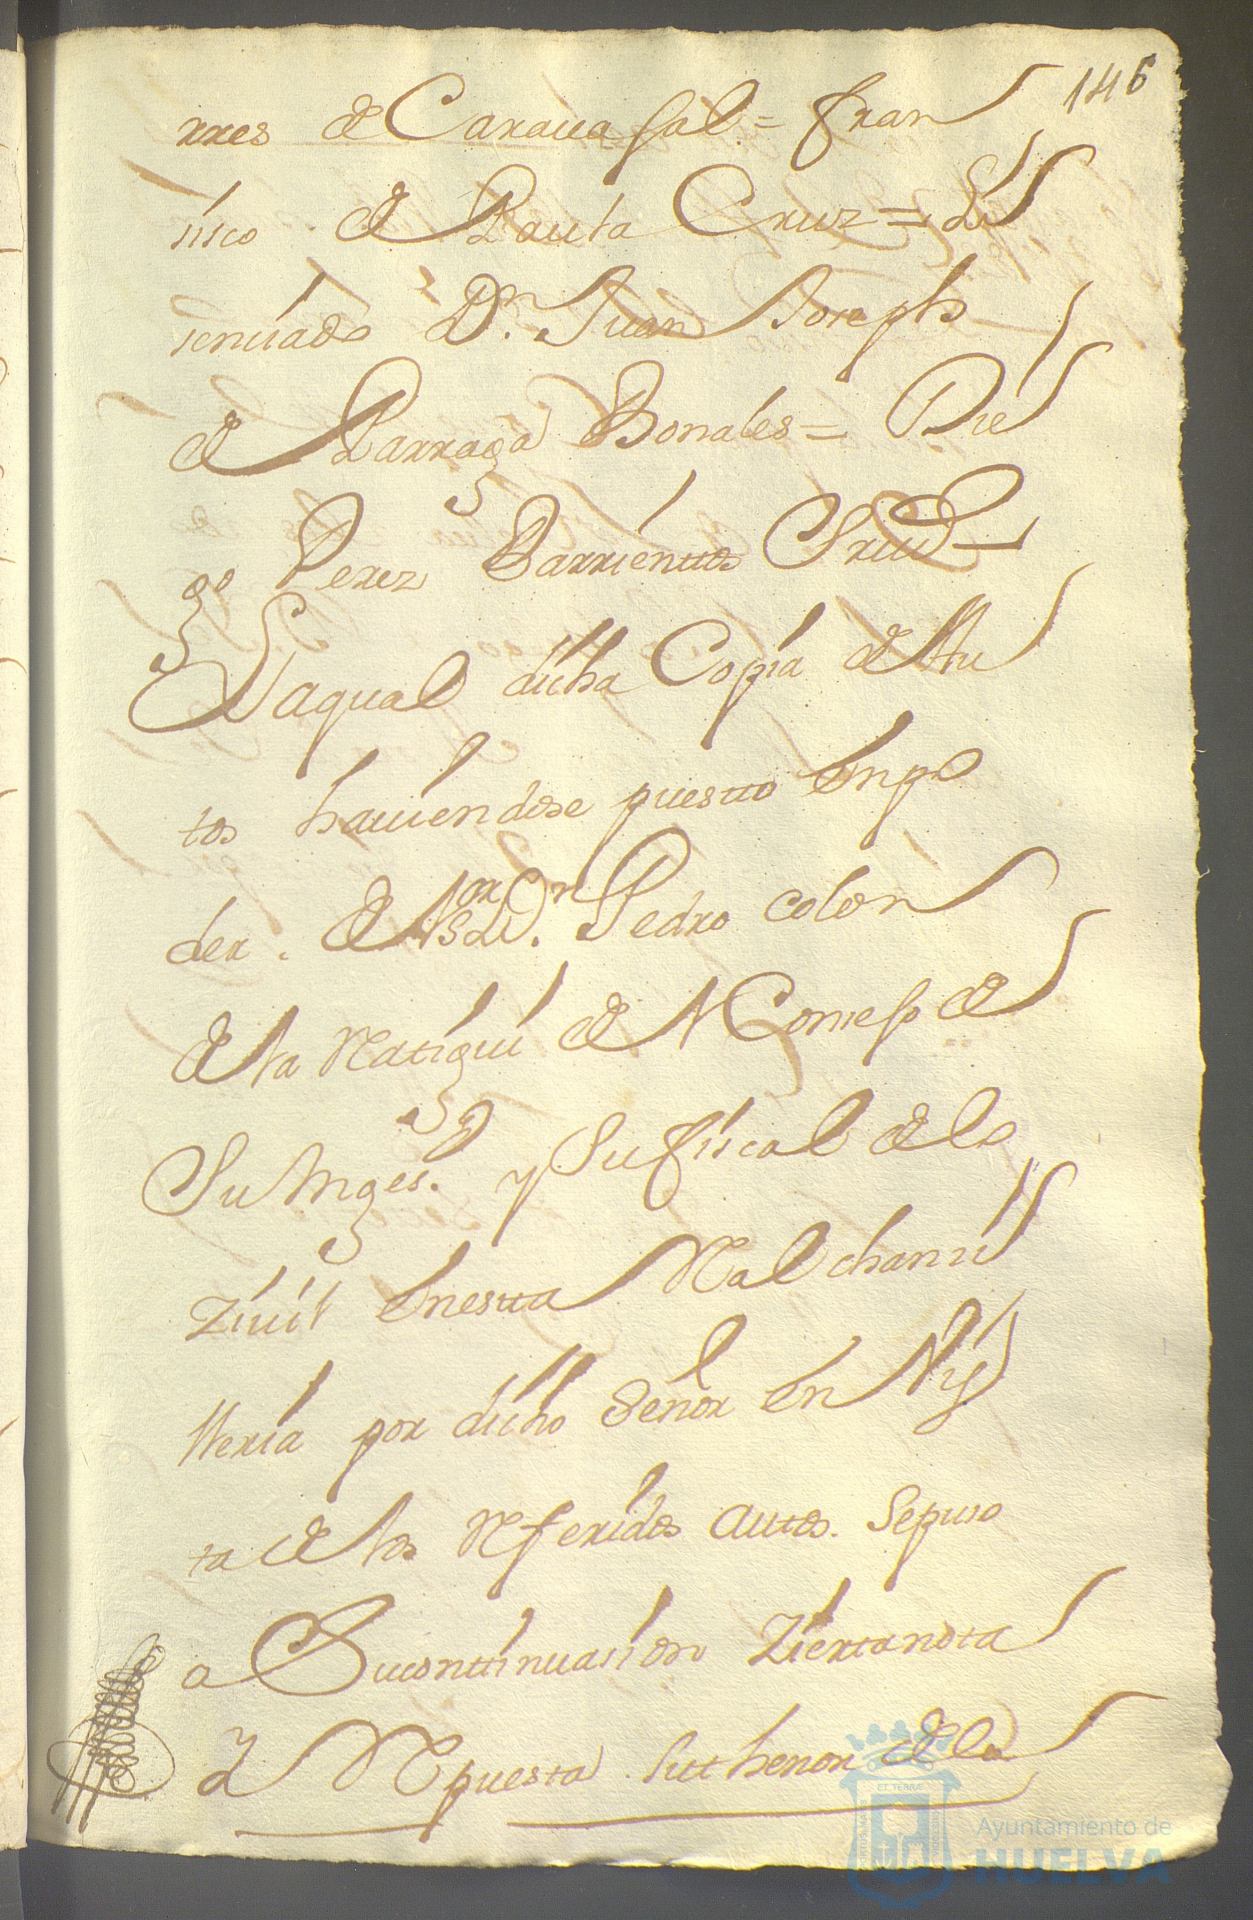 146
rres de Carauajal = fran
sisco de Paula Cruz = Li
senciado Dn. Juan Joseph
de Parraga Bonales = Die
go Perez Barrientos Srio
Laqual dicha Copia de Au
tos hauiendose puesto enpo
der. del Sor Dn. Pedro colon
dela Rategui del Consejo de
Su Mgesd. y Su fiscal de lo
Ziuil enesta Ral chansi
lleria por dicho Señor en Vis
ta de los Referidos autos. Sepuso
a Sucontinuasion Ziertanota
y Rpuesta. Suthenor de la
Ayuntamiento de
HUELVA